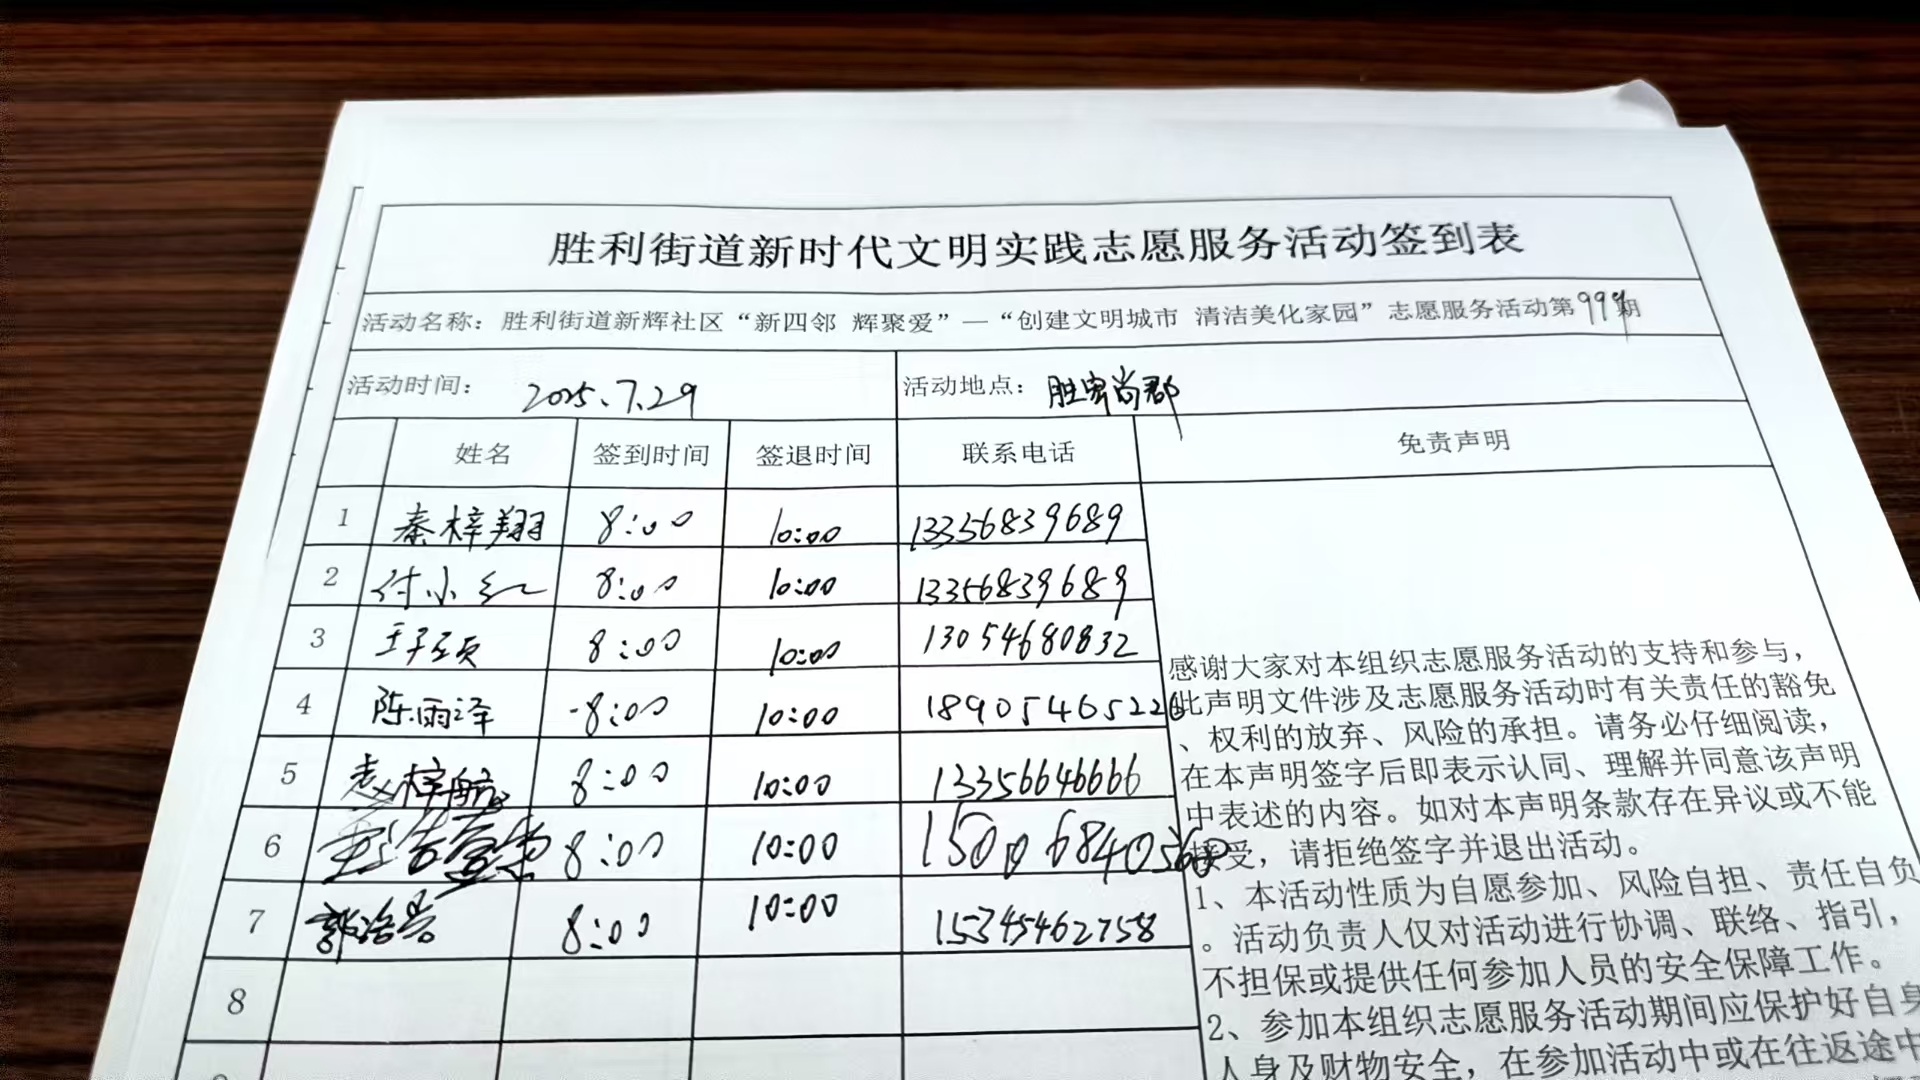 胜利街道新时代文明实践志愿服务活动签到表
活动名称：胜利街道新辉社区“新四邻 辉聚爱”—“创建文明城市 清洁美化家园”志愿服务活动第999期
活动时间： 2025.7.29 活动地点： 胜宏尚郡
姓名 签到时间 签退时间 联系电话 免责声明
1 秦梓翔 8:00 10:00 13356839689
2 付小红 8:00 10:00 13356839689
3 8:00 10:00 13054680832
4 陈雨泽 8:00 10:00 18905465226
5 赵梓航 8:00 10:00 13356646666
6 8:00 10:00
7 郭浩岩 8:00 10:00 15345462758
8
感谢大家对本组织志愿服务活动的支持和参与，
此声明文件涉及志愿服务活动时有关责任的豁免
、权利的放弃、风险的承担。请务必仔细阅读，
在本声明签字后即表示认同、理解并同意该声明
中表述的内容。如对本声明条款存在异议或不能
接受，请拒绝签字并退出活动。
1、本活动性质为自愿参加、风险自担、责任自负
。活动负责人仅对活动进行协调、联络、指引，
不担保或提供任何参加人员的安全保障工作。
2、参加本组织志愿服务活动期间应保护好自身
人身及财物安全，在参加活动中或在往返途中